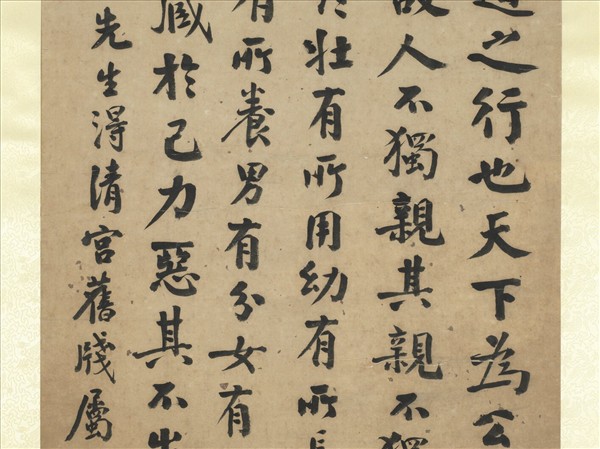 道之行也天下為公
故人不獨親其親不獨
壯有所用幼有所長
有所養男有分女有
藏於己力惡其不出
先生得清宮舊牋屬